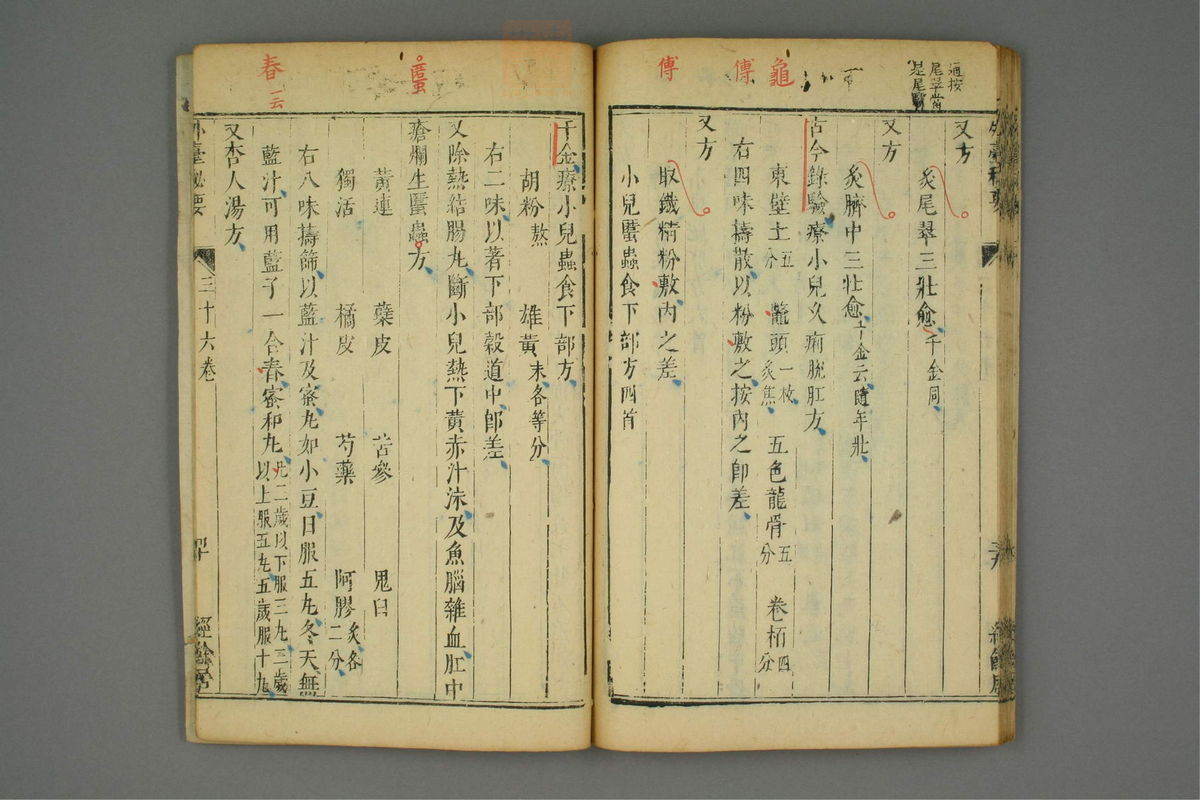 通按
尾翠當
是尾骶
龜
傅
傅
又方
灸尾翠三壯愈千金同
又方
灸臍中三壯愈千金云隨年壯
古今錄驗療小兒久痢脫肛方
東壁土五分 鼈頭一枚炙焦 五色龍骨五分 卷栢四分
右四味擣散以粉敷之按內之卽差
又方
取鐵精粉敷內之差
小兒䘌蟲食下部方四首
千金療小兒蟲食下部方
胡粉熬 雄黃末各等分
右二味以著下部穀道中卽差
又除熱結腸丸斷小兒熱下黃赤汁沫及魚腦雜血肛中
瘡爛生䘌蟲方
黃連 蘗皮 苦參 鬼臼
獨活 橘皮 芍藥 阿膠炙各二分
右八味擣篩以藍汁及蜜丸如小豆日服五丸冬天無
藍汁可用藍子一合舂蜜和丸凡二歲以下服三丸三歲以上服五丸五歲服十丸
又杏人湯方
䘌
舂
云
外臺秘要 三十六卷 四十 經餘居